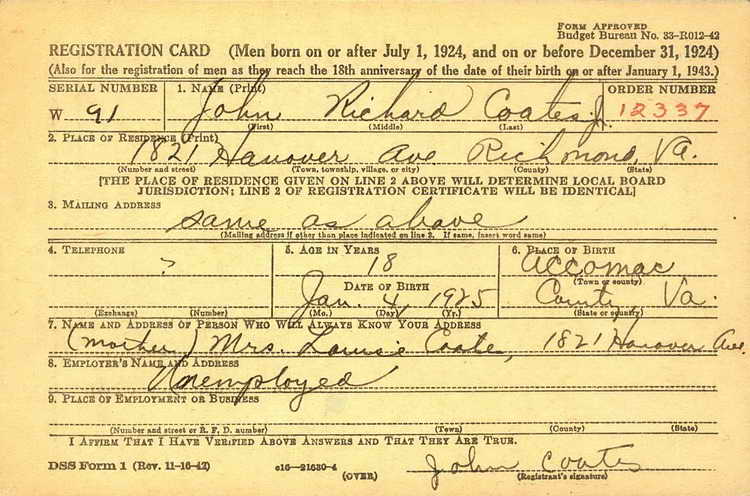 FORM APPROVED
Budget Bureau No. 33-R012-42
REGISTRATION CARD (Men born on or after July 1, 1924, and on or before December 31, 1924)
(Also for the registration of men as they reach the 18th anniversary of the date of their birth on or after January 1, 1943.)
SERIAL NUMBER 1. NAME (Print) ORDER NUMBER
W 91 John Richard Coates Jr. 12337
(First) (Middle) (Last)
2. PLACE OF RESIDENCE (Print)
1821 Hanover Ave Richmond, Va.
(Number and street) (Town, township, village, or city) (County) (State)
[THE PLACE OF RESIDENCE GIVEN ON LINE 2 ABOVE WILL DETERMINE LOCAL BOARD
JURISDICTION; LINE 2 OF REGISTRATION CERTIFICATE WILL BE IDENTICAL]
3. MAILING ADDRESS
same as above
(Mailing address if other than place indicated on line 2. If same, insert word same)
4. TELEPHONE 5. AGE IN YEARS 6. PLACE OF BIRTH
? 18 Accomac
(Town or county)
DATE OF BIRTH
Jan. 4, 1925 County Va.
(Exchange) (Number) (Mo.) (Day) (Yr.) (State or country)
7. NAME AND ADDRESS OF PERSON WHO WILL ALWAYS KNOW YOUR ADDRESS
(mother) Mrs. Louise Coate, 1821 Hanover Ave
8. EMPLOYER'S NAME AND ADDRESS
Unemployed
9. PLACE OF EMPLOYMENT OR BUSINESS
(Number and street or R. F. D. number) (Town) (County) (State)
I AFFIRM THAT I HAVE VERIFIED ABOVE ANSWERS AND THAT THEY ARE TRUE.
DSS Form 1 (Rev. 11-16-42) c16-21630-4 John Coates
(OVER) (Registrant's signature)